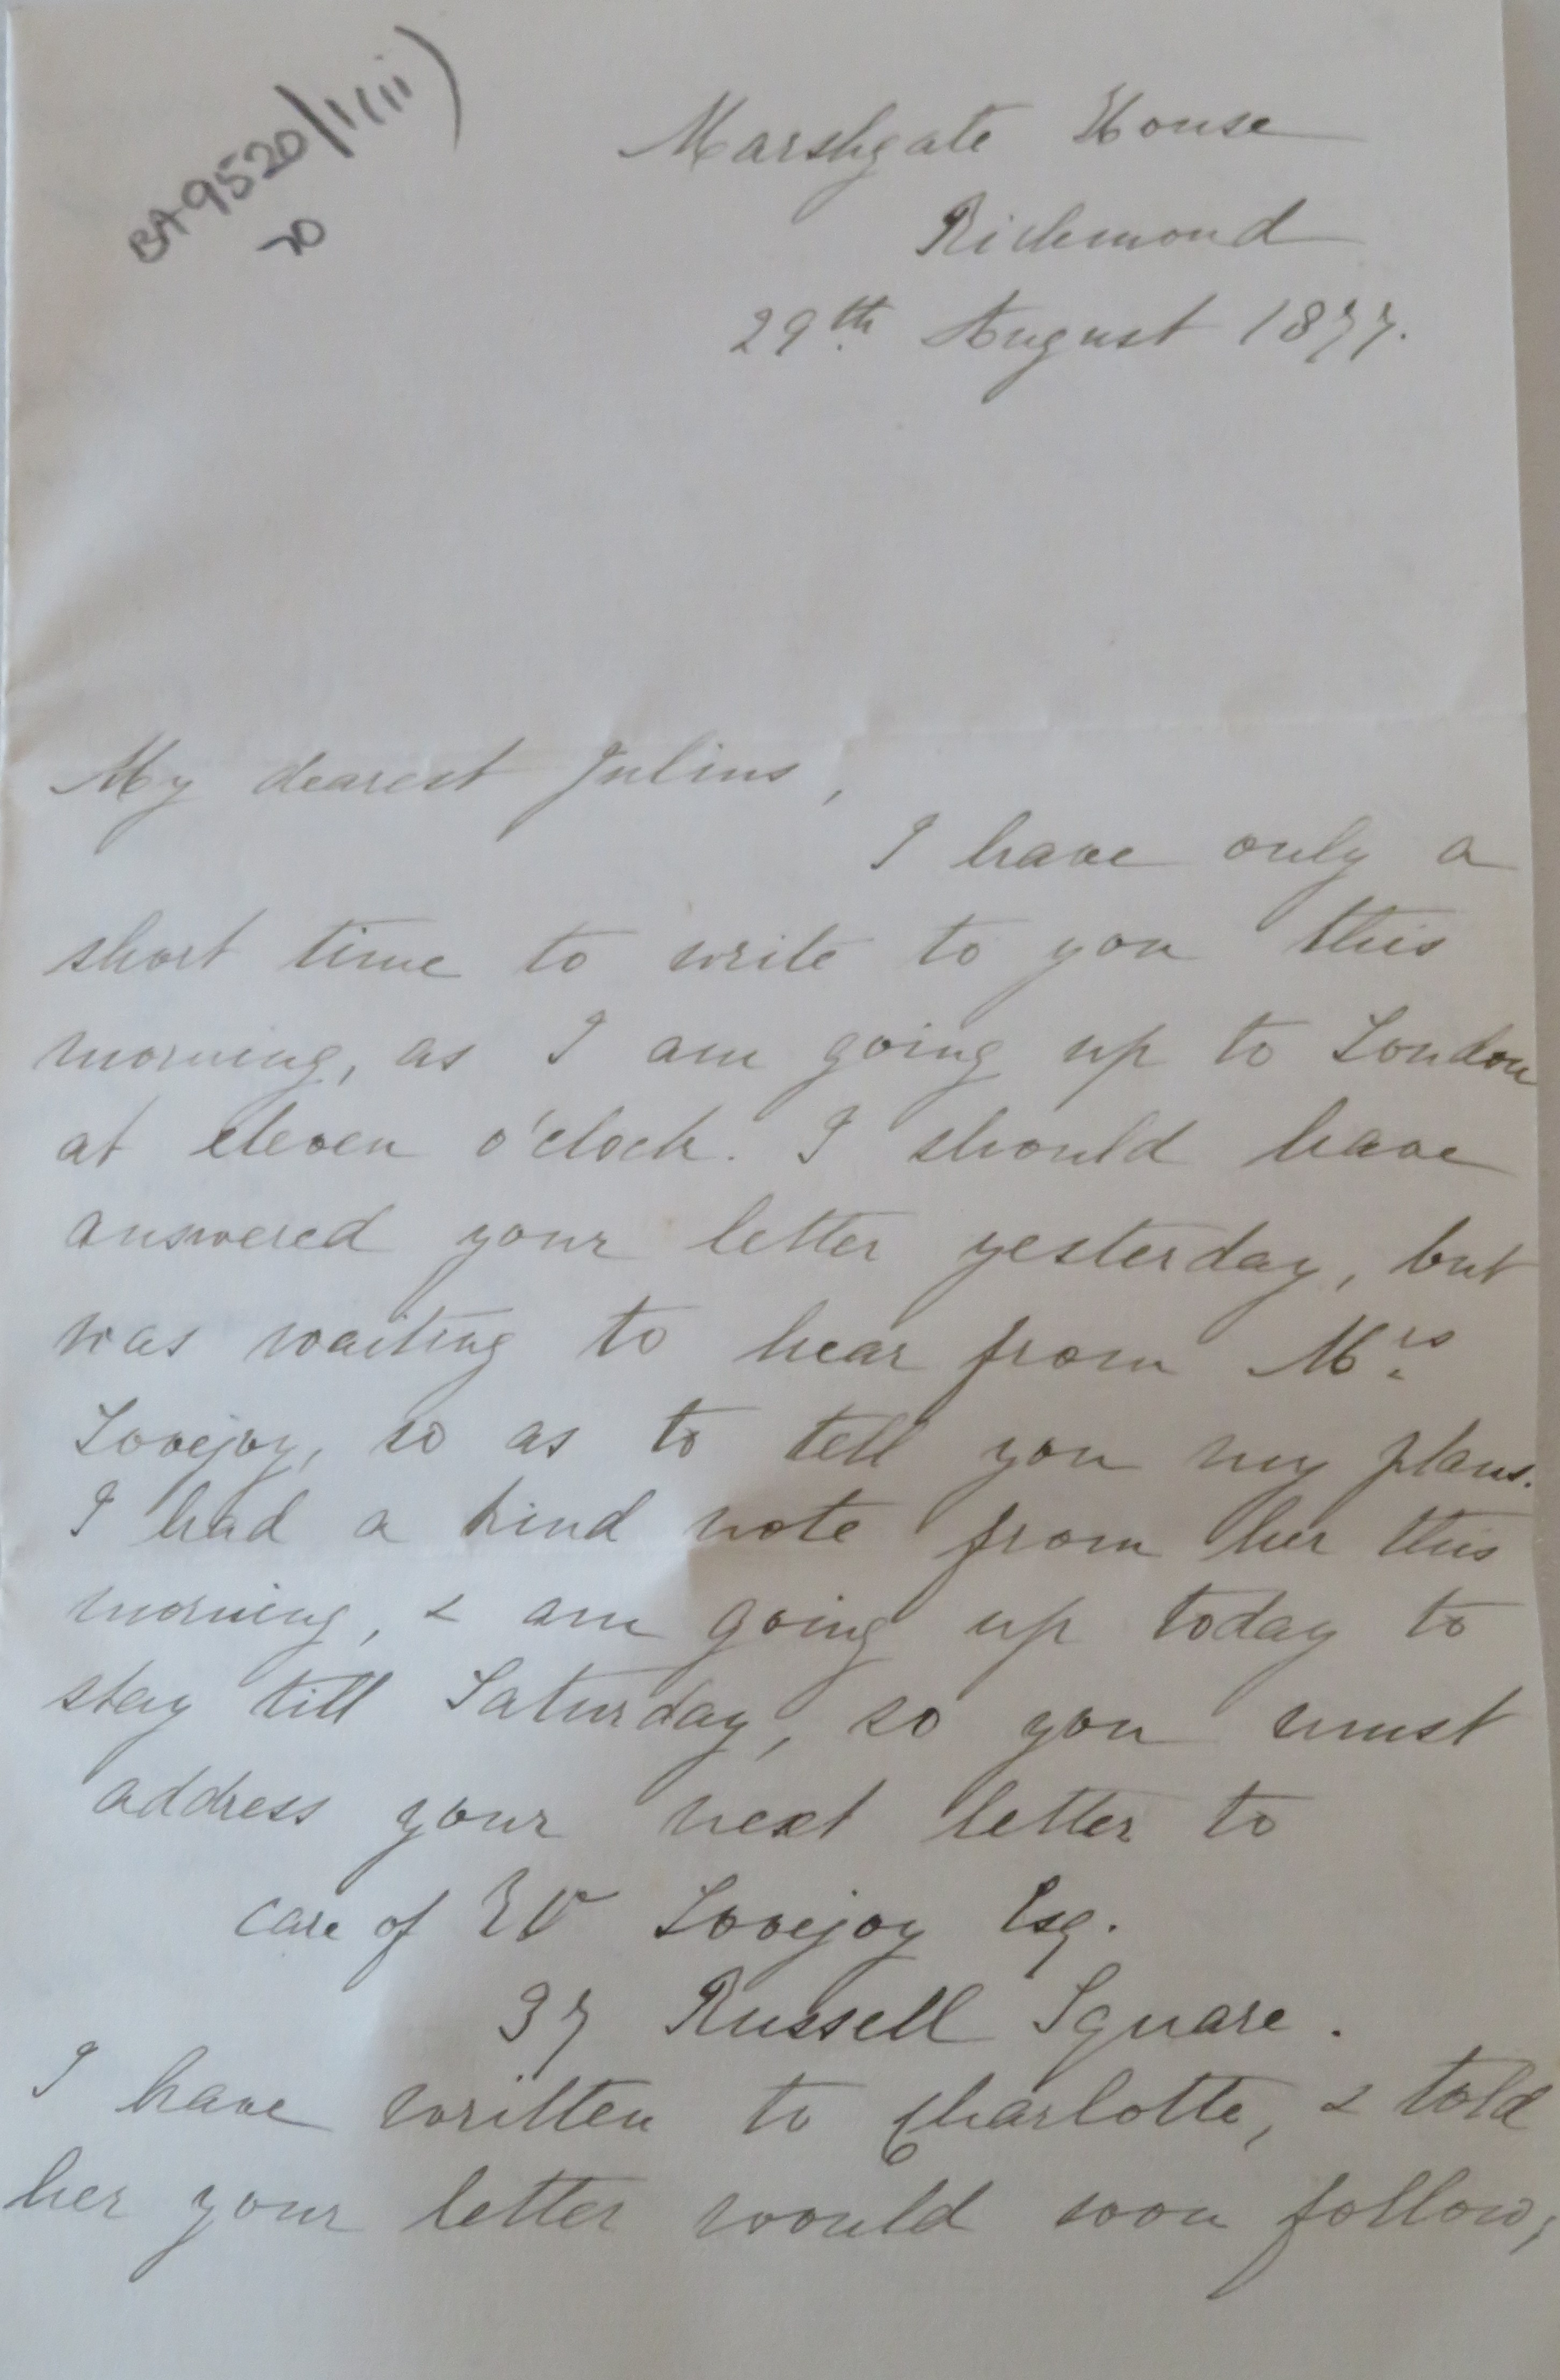 BA9520/1(ii)
70
Marshgate House
Richmond
29th August 1877.
My dearest Julius,
I have only a
short time to write to you this
morning, as I am going up to London
at eleven o'clock. I should have
answered your letter yesterday, but
was waiting to hear from Mrs
Lovejoy, so as to tell you my plans.
I had a kind note from her this
morning, & am going up today to
stay till Saturday, so you must
address your next letter to
care of Lovejoy Esq.
37 Russell Square.
I have written to Charlotte, & told
her your letter would soon follow,